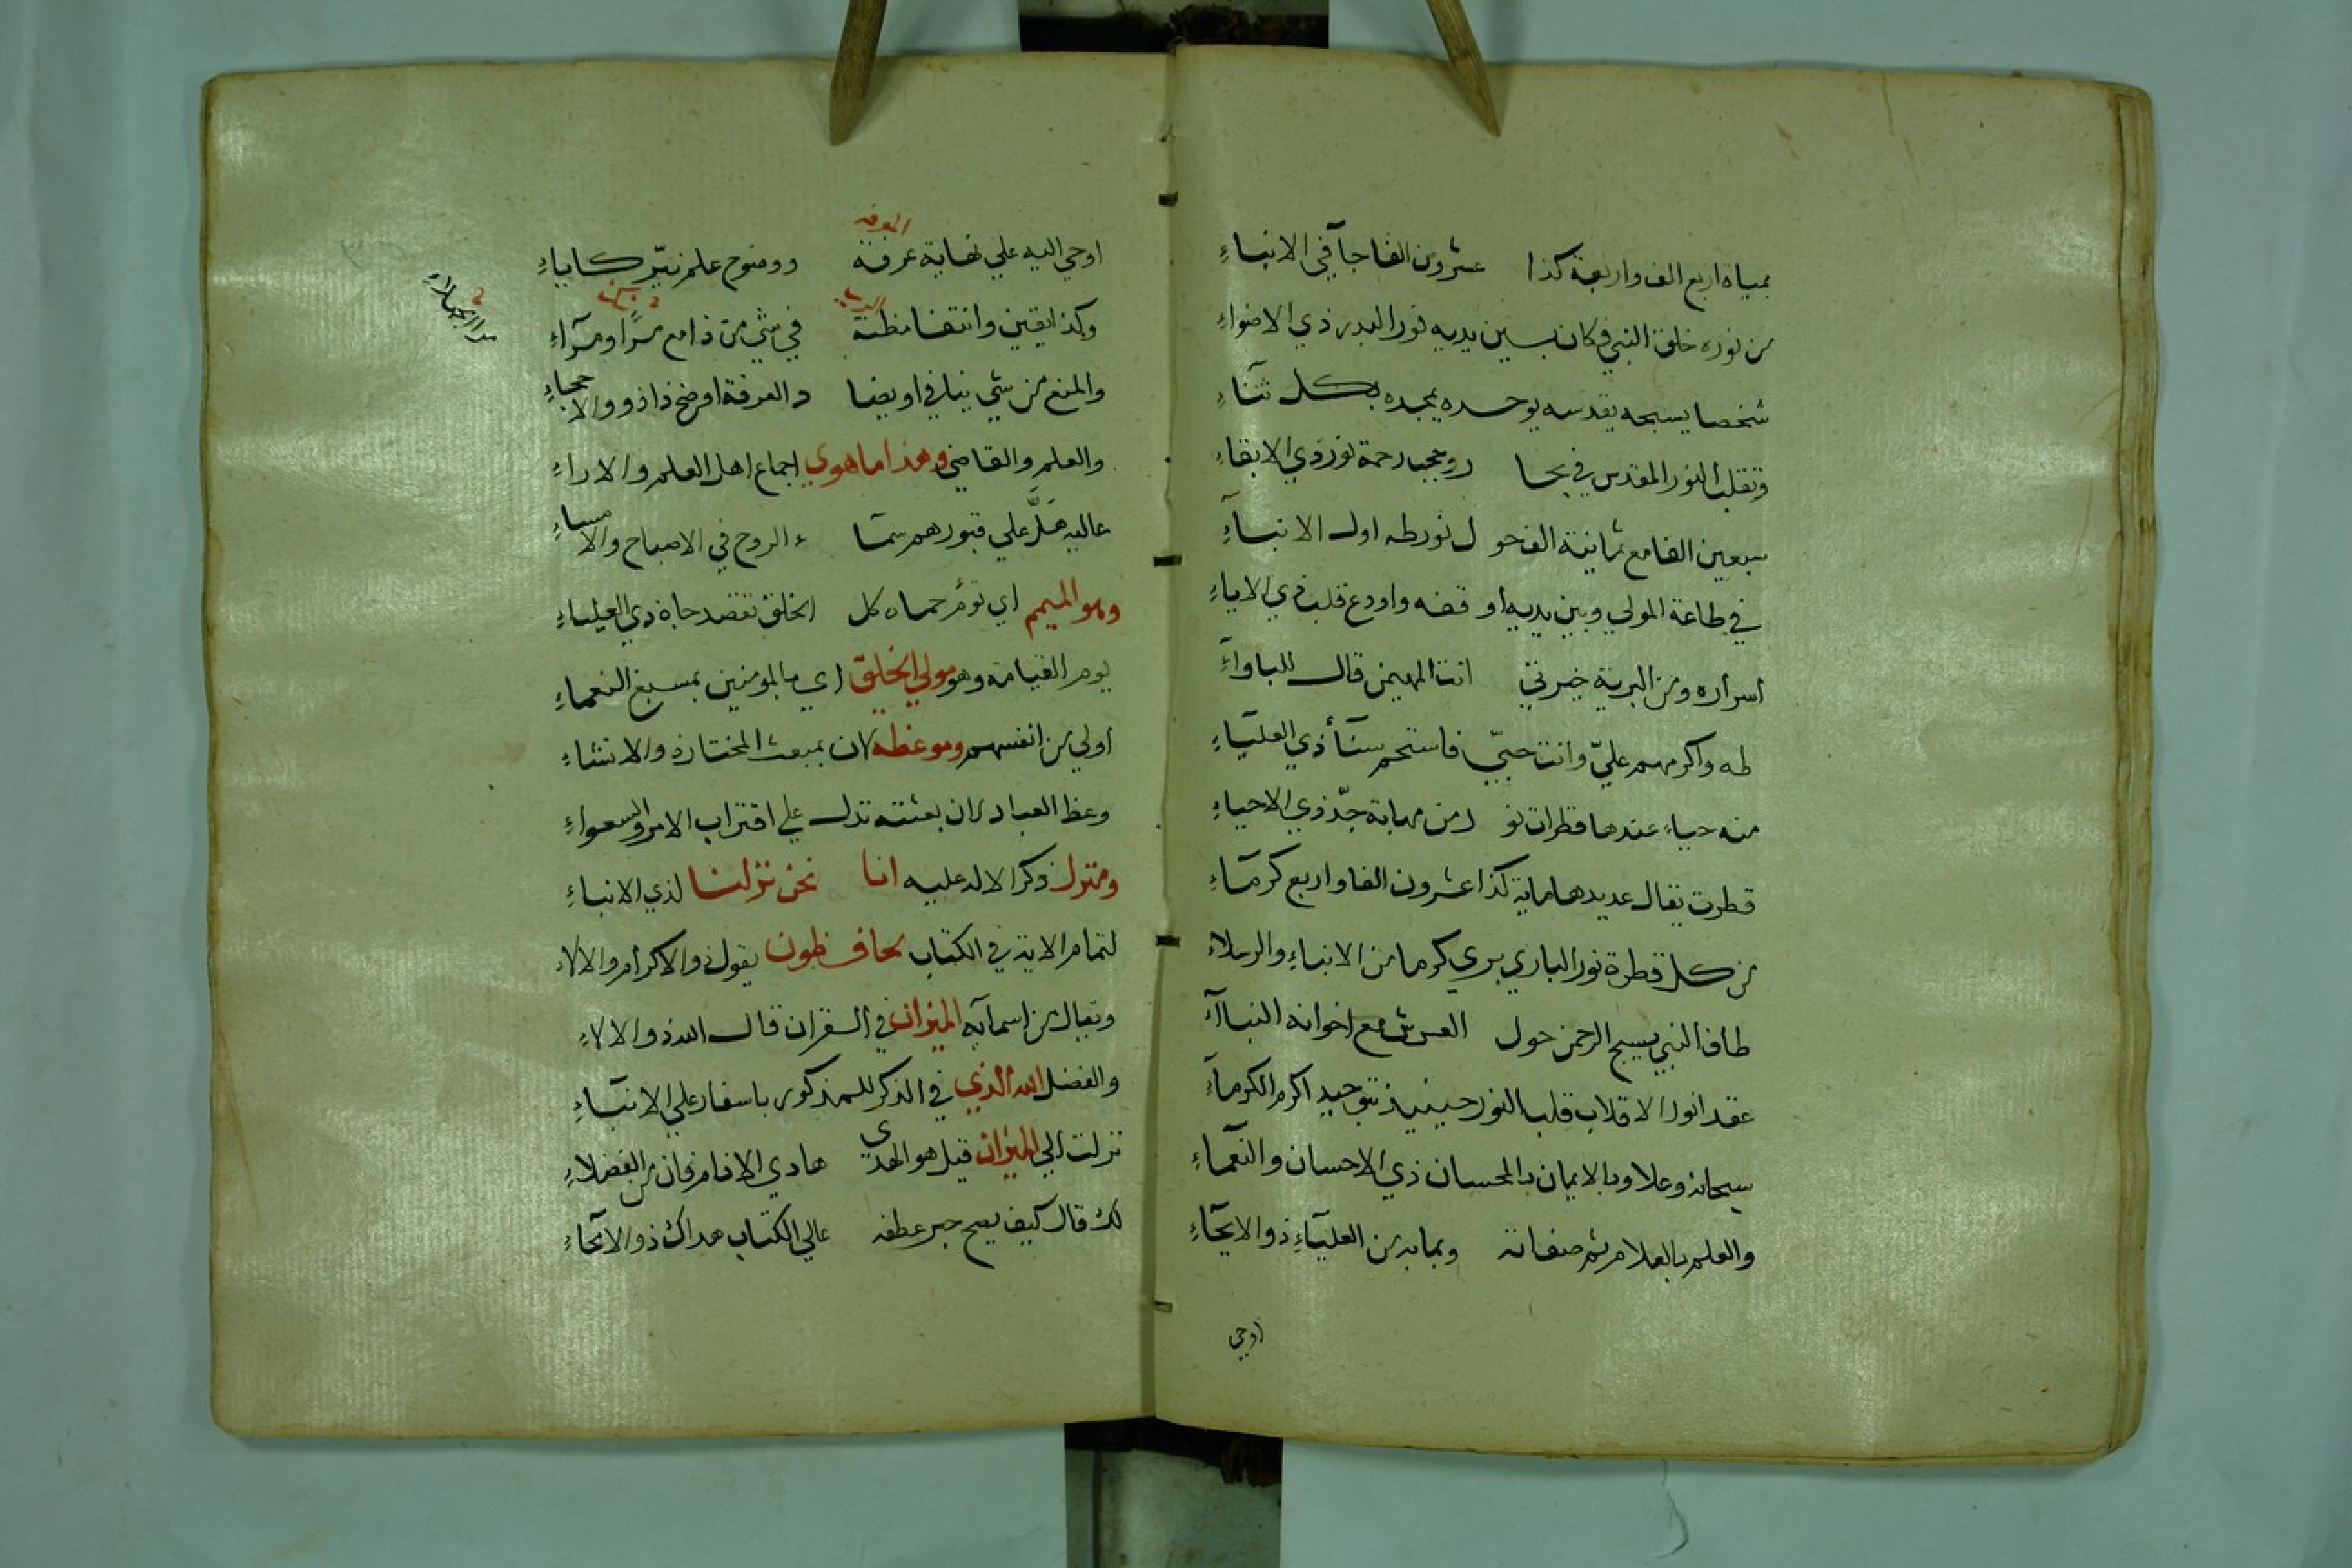 بمياة اربع الف واربعة كذا عشرون الفا جآ في الانبآءِ
من نوره خلق النبي فكان بين يديه نور البدر ذي الاضواءِ
شخصا يسبحه يقدسه يوحده يمجده بكل ثناءِ
وتقلب النور المقدس في بحا ر وحجب رحمة نور ذي الابقاءِ
سبعين الفا مع ثمانية الف حو ل نور طه اول الانبآءِ
في طاعة المولي وبين يديه او قفه واودع قلب ذي الاباءِ
اسراره ومن البرية خيرتي انت المهيمن قال للباوآءِ
طه واكرمهم عليّ وانت حبيّ فاستحم سنآ ذي العليآءِ
منه حياء عندها قطرات نو ر من مهابة جدّ ذي الاحياءِ
قطرت يقال عديدها ماية كذا عشرون الفا واربع كرمآءِ
من كل قطرة نور الباري بري كرما من الانباءِ والرسلاء
طاف النبي يسبح الرحمن حول العرش مع اخوانه النباآء
عقد انور الاقلاب قلب النور حينيذ بتوحيد اكرم الكرمآءِ
سبحانه وعلا وبالايمان بالمحسان ذي الاحسان والنعمآءِ
والعلم بالعلام ثم صفاته وبما به من العليآءِ ذو الايحآءِ
اوحي
اوحي اليه علي نهاية عرفة ووضوح علم نيّر كاياءِ
وكذا يقين وانتفا مظنة في شي من ذا مع سرًا ومرآءِ
والمنع من شي ينافي او يضا د العرفة اوضح ذا ذو والاحجاءِ
والعلم والقاضي وهذا ما هوي اجماع اهل العلم والاراءِ
عاليه هَلَّ علي قبورهم سمآ ء الروح في الاصباح والامساءِ
وهو الميمم اي تؤم حماه كل الخلق تقصد جاه ذي العلياءِ
يوم القيامة وهو مولي الخلق اي بالمومنين بمسبغ النعماءِ
اولي من انفسهم وموعظه لان بمبعث المختار ذو الانشاءِ
وعظ العباد لان بعثته تدل علي اقتراب الامر والسعواءِ
ومنزل ذكر الاله عليه انا نحن نزلنا لذي الانباءِ
لتمام الاية في الكتاب لحافظون يقول ذو الاكرام والالاء
ويقال من اسمآيه الميزان في القران قال الله ذو الالاءِ
والفضل الله الذي في الذكر للمذكور باسفار علي الانبآءِ
نزلت الي الميزان قيل هو الهدي هادي الانام فان من الفضلاءِ
لك قال كيف يصح جر عطفه عالي الكتاب هداك ذو الايحآءِ